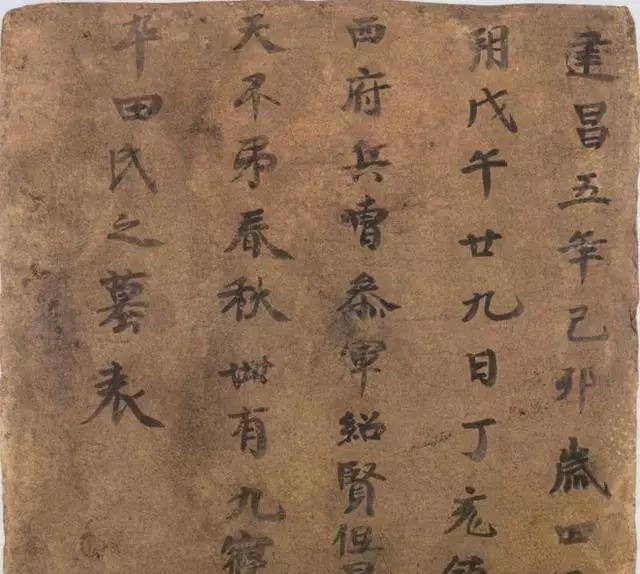 建昌五年己卯歲四
朔戊午廿九日丁亥
西府兵曹叅軍紹賢但
天不弔春秋卌有九寢
卒田氏之墓表